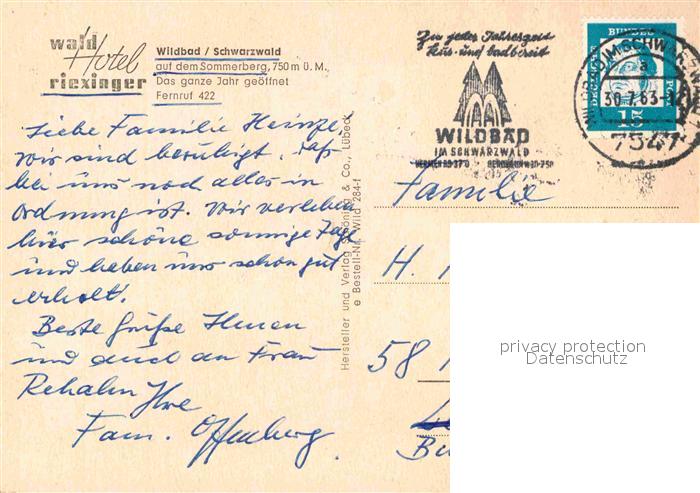 wald
Hotel
riexinger
Wildbad / Schwarzwald
auf dem Sommerberg, 750 m ü. M.
Das ganze Jahr geöffnet
Fernruf 422
Liebe Familie Heinze,
wir sind beruhigt, daß
bei uns noch alles in
Ordnung ist. Wir verleben
hier schöne sonnige Tage
und haben uns schon gut
erholt.
Beste Grüße Ihnen
und auch an Frau
Ihre
Fam. Offenberg.
Hersteller und Verlag Schöning & Co., Lübeck
Bestell-Nr. Wild 284-f
Zu jeder Jahreszeit
kur- und badbereit
WILDBAD
IM SCHWARZWALD
DEUTSCHE
BUNDES
POST
15
WILDBAD IM SCHWARZW
a
30.7.63-12
7547
Familie
H.
58
privacy protection
Datenschutz